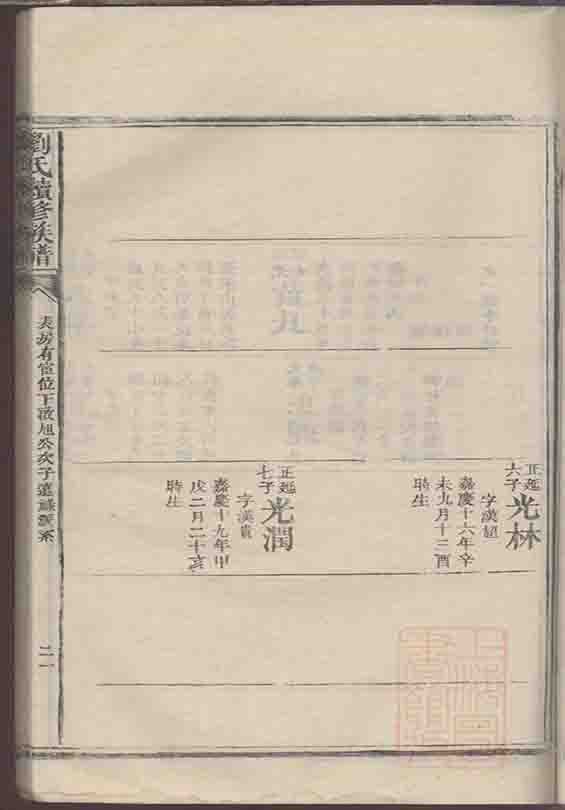 正延
六子
光林
字漢超
嘉慶十六年辛
未九月十三酉
時生
正延
七子
光潤
字漢貴
嘉慶十九年甲
戌二月二十亥
時生
劉氏續修族譜
房有富位下敬旭公次子遠
系
二一